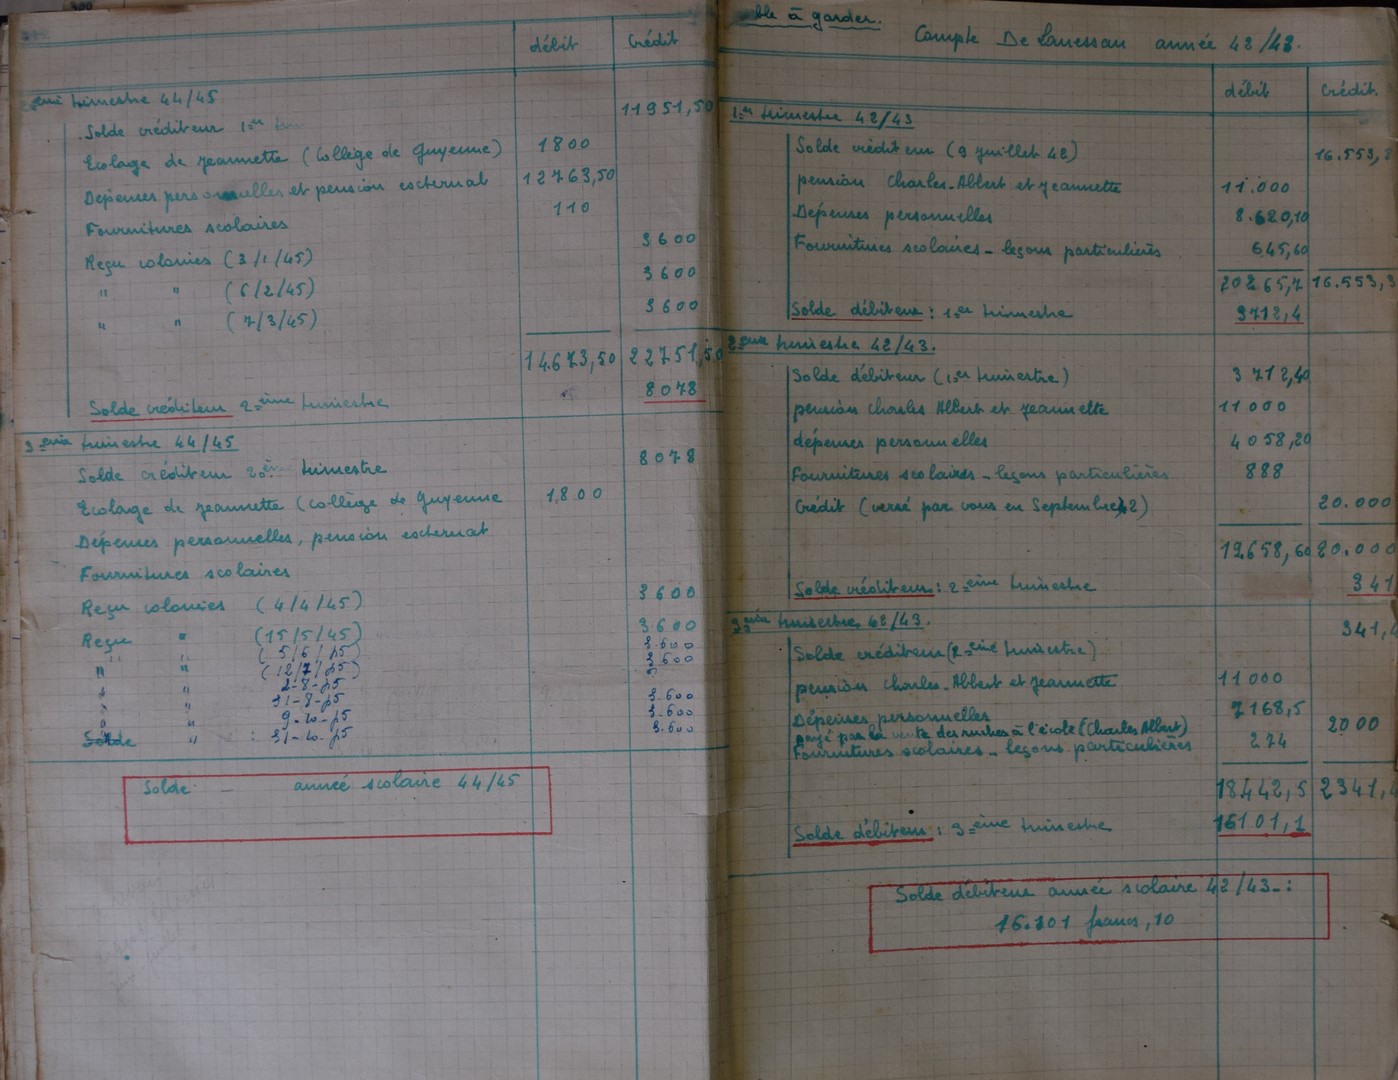 débit crédit
trimestre 44/45
Solde créditeur 1er 11951,50
Ecolage de Jeannette (Collège de Guyenne) 1800
Dépenses personnelles et pension externat 12763,50
Fournitures scolaires 110
Reçu colonies (3/1/45) 3600
" " (6/2/45) 3600
" " (7/3/45) 3600
14.673,50 22751,50
Solde créditeur 2ème trimestre 8078
3ème trimestre 44/45
Solde créditeur 2ème trimestre 8078
Ecolage de Jeannette (Collège de Guyenne 1800
Dépenses personnelles, pension externat
Fournitures scolaires
Reçu colonies (4/4/45) 3600
Reçu " (15/5/45) 3600
" " (5/6/45) 3.600
" " (12/7/45) 3.600
" 2-8-45
" " 31-8-45 3.600
" 9-10-45 3.600
Solde " : 31-10-45 3.600
Solde année scolaire 44/45
ble à garder.
Compte De Lanessan année 42/43.
débit crédit.
1er trimestre 42/43
Solde créditeur (9 juillet 42) 16.553,3
pension Charles-Albert et Jeannette 11.000
Dépenses personnelles 8.620,10
Fournitures scolaires - leçons particulières 645,60
20265,7 16.553,3
Solde débiteur : 1er trimestre 3712,4
2ème trimestre 42/43.
Solde débiteur (1er trimestre) 3712,40
pension Charles Albert et Jeannette 11000
dépenses personnelles 4058,20
Fournitures scolaires - leçons particulières 888
Crédit (versé par vous en Septembre 42) 20.000
19658,60 20.000
Solde créditeur : 2ème trimestre 341
3ème trimestre 42/43.
Solde créditeur (2ème trimestre) 341,4
pension Charles-Albert et Jeannette 11000
Dépenses personnelles 7168,5
payé par la vente des ruches à l'école (Charles Albert) 2000
Fournitures scolaires - leçons particulières 274
18442,5 2341,4
Solde débiteur : 3ème trimestre 16101,1
Solde débiteur année scolaire 42/43-:
16.101 francs,10